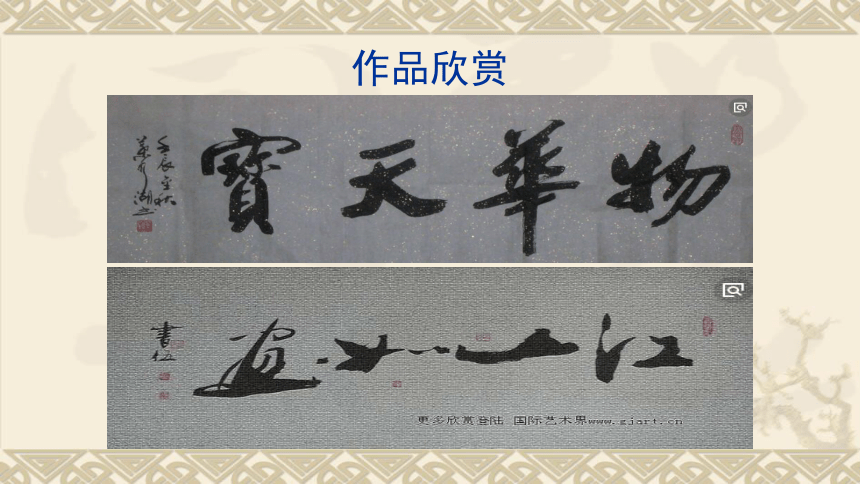 作品欣赏
物華天寶
壬辰金秋
江山如畫
更多欣赏登陆 国际艺术界www.gjart.cn